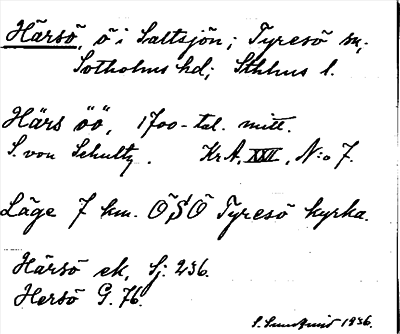 Härsö, ö i Saltsjön; Tyresö sn;
Sotholms hd; Sthlms l.
Härs öö, 1700-tal. mitt.
S. von Schultz. Kr A, XXII, N:o 7.
Läge 7 km. ÖSÖ Tyresö kyrka.
Härsö ek, Sj. 236.
Hersö G. 76.
S. Sundquist 1936.